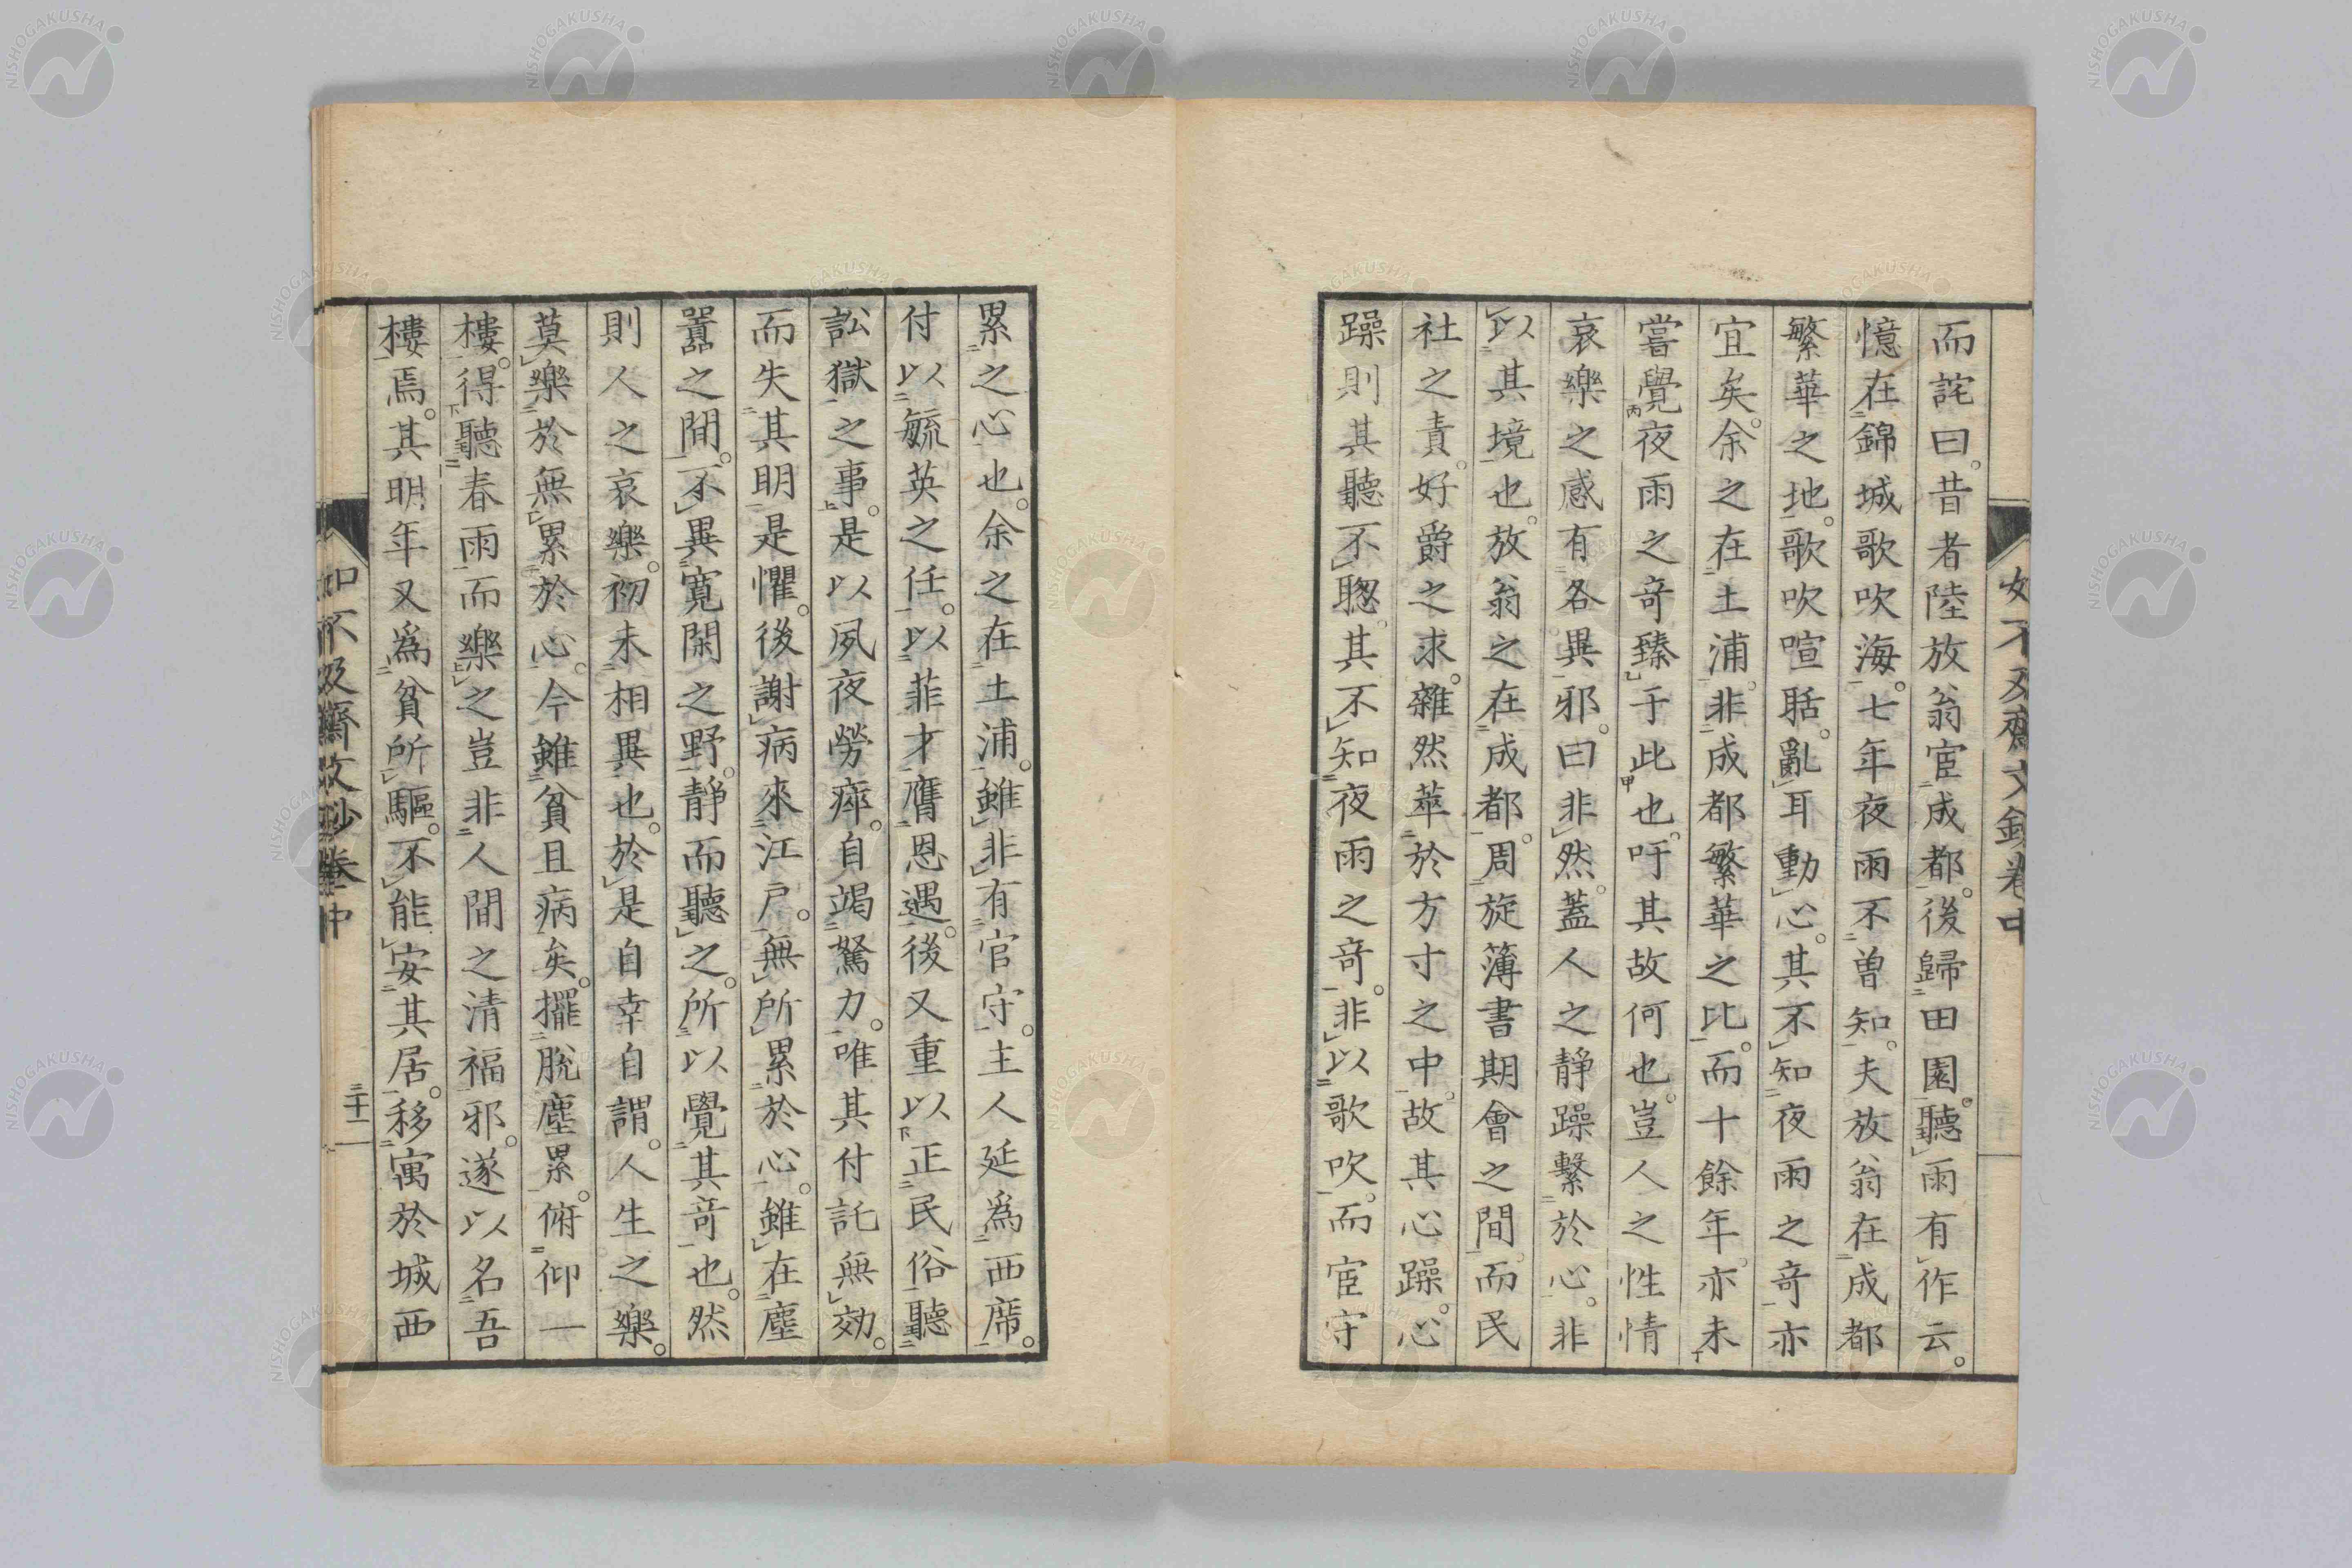 如不及齋文鈔卷中
而詫曰。昔者陸放翁宦成都。後歸田園。聽雨有作云。
憶在錦城歌吹海。七年夜雨不曾知。夫放翁在成都
繁華之地。歌吹喧聒。亂耳動心。其不知夜雨之奇亦
宜矣。余之在土浦。非成都繁華之比。而十餘年。亦未
嘗覺夜雨之奇臻于此也。吁其故何也。豈人之性情
哀樂之感有各異邪。曰非然。蓋人之靜躁繫於心。非
以其境也。放翁之在成都。周旋簿書期會之間。而民
社之責。好爵之求。雜然萃於方寸之中。故其心躁。心
躁則其聽不聰。其不知夜雨之奇。非以歌吹。而宦守
累之心也。余之在土浦。雖非有官守。主人延爲西席。
付以毓英之任。以菲才膺恩遇。後又重以正民俗聽
訟獄之事。是以夙夜勞瘁。自竭駑力。唯其付託無効。
而失其明是懼。後謝病來江戶。無所累於心。雖在塵
囂之間。不異寬閑之野。靜而聽之。所以覺其奇也。然
則人之哀樂。初未相異也。於是自幸自謂。人生之樂。
莫樂於無累於心。今雖貧且病矣。擺脫塵累。俯仰一
樓。得聽春雨而樂之豈非人間之清福邪。遂以名吾
樓焉。其明年又爲貧所驅。不能安其居。移寓於城西
如不及齋文鈔卷中
三十二
NISHOGAKUSHA